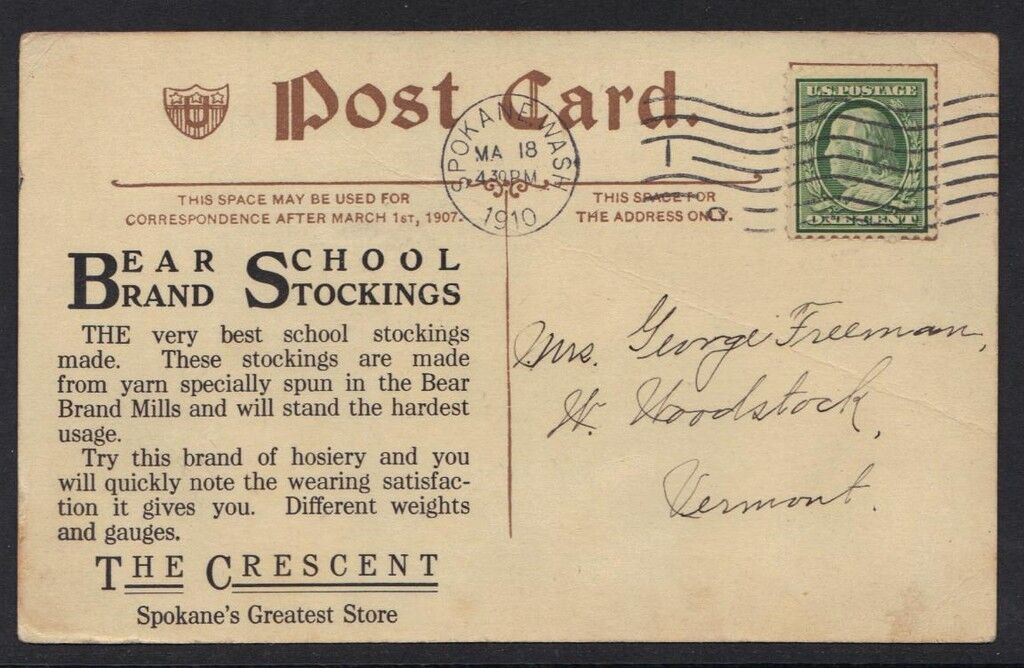 Post Card.
SPOKANE WASH
MA 18
4 30 PM
1910
U.S. POSTAGE
ONE CENT
THIS SPACE MAY BE USED FOR
CORRESPONDENCE AFTER MARCH 1ST, 1907.
THIS SPACE FOR
THE ADDRESS ONLY.
BEAR SCHOOL
BRAND STOCKINGS
THE very best school stockings
made. These stockings are made
from yarn specially spun in the Bear
Brand Mills and will stand the hardest
usage.
Try this brand of hosiery and you
will quickly note the wearing satisfac-
tion it gives you. Different weights
and gauges.
THE CRESCENT
Spokane's Greatest Store
Mrs. George Freeman,
W. Woodstock,
Vermont.